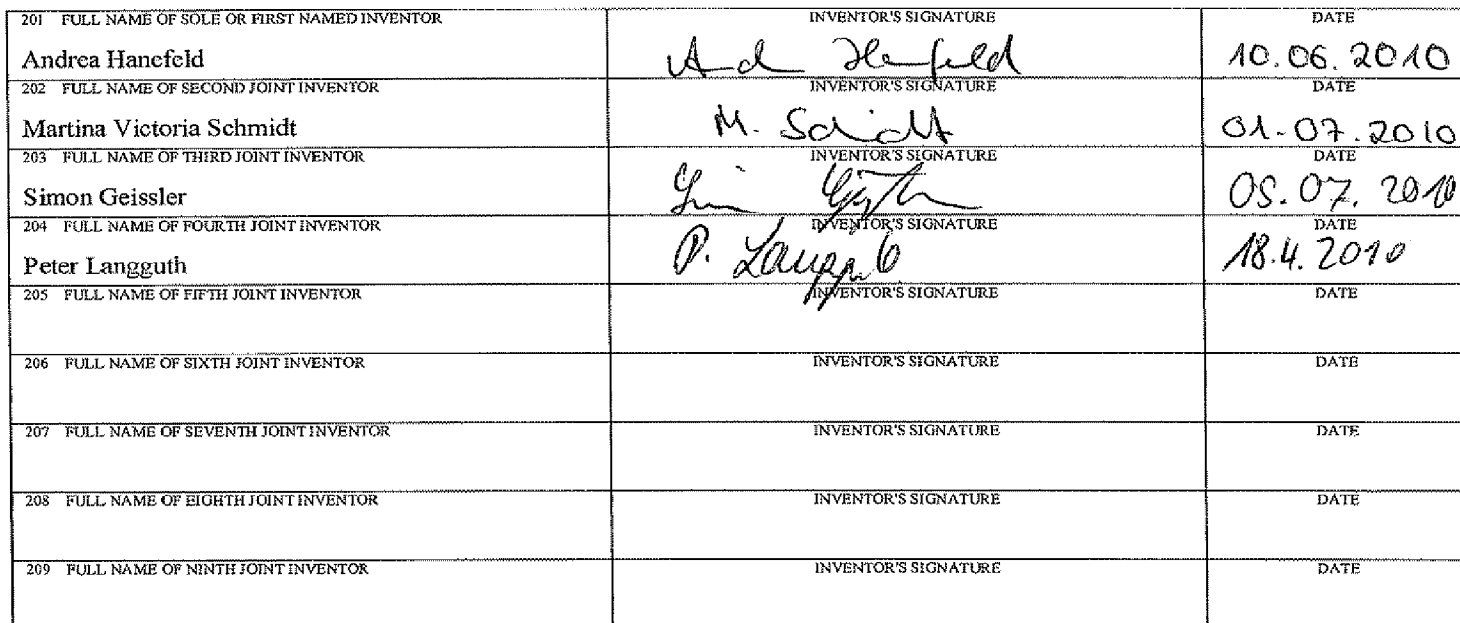 201 FULL NAME OF SOLE OR FIRST NAMED INVENTOR INVENTOR'S SIGNATURE DATE
Andrea Hanefeld 10.06.2010
202 FULL NAME OF SECOND JOINT INVENTOR INVENTOR'S SIGNATURE DATE
Martina Victoria Schmidt M. Schmidt 01.07.2010
203 FULL NAME OF THIRD JOINT INVENTOR INVENTOR'S SIGNATURE DATE
Simon Geissler 05.07.2010
204 FULL NAME OF FOURTH JOINT INVENTOR INVENTOR'S SIGNATURE DATE
Peter Langguth P. Langguth 18.4.2010
205 FULL NAME OF FIFTH JOINT INVENTOR INVENTOR'S SIGNATURE DATE
206 FULL NAME OF SIXTH JOINT INVENTOR INVENTOR'S SIGNATURE DATE
207 FULL NAME OF SEVENTH JOINT INVENTOR INVENTOR'S SIGNATURE DATE
208 FULL NAME OF EIGHTH JOINT INVENTOR INVENTOR'S SIGNATURE DATE
209 FULL NAME OF NINTH JOINT INVENTOR INVENTOR'S SIGNATURE DATE